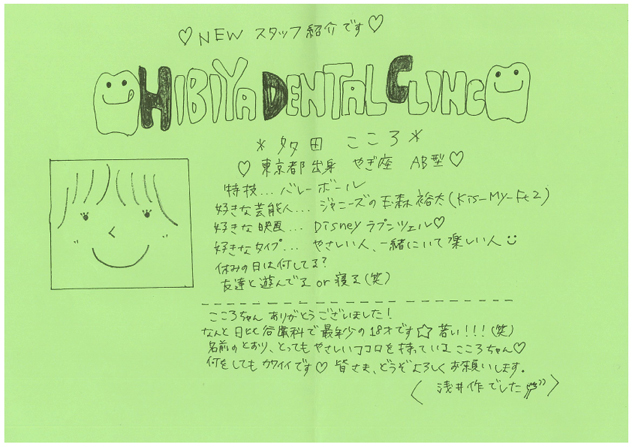 ♡NEW スタッフ紹介です♡
HIBIYA DENTAL CLINIC
＊多田 こころ＊
♡東京都出身 やぎ座 AB型♡
特技... バレーボール
好きな芸能人... ジャニーズの玉森裕太(Kis-My-Ft2)
好きな映画... Disney ラプンツェル♡
好きなタイプ... やさしい人、一緒にいて楽しい人
休みの日は何してる?
友達と遊んでる or 寝る(笑)
こころちゃん ありがとうございました!
なんと日比谷歯科で最年少の18才です☆若い!!!(笑)
名前のとおり、とってもやさしいココロを持っている こころちゃん♡
何をしてもカワイイです♡ 皆さま、どうぞよろしくお願いします。
〈 浅井作でした 〉